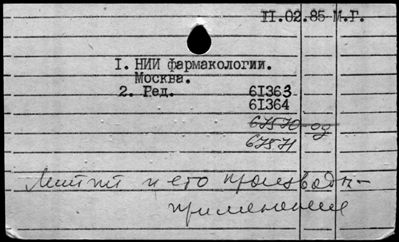 11.02.85 М.Г.
1. НИИ фармакологии.
Москва.
2. Ред. 61363
61364
67570-од
67571
и его производн-
применение